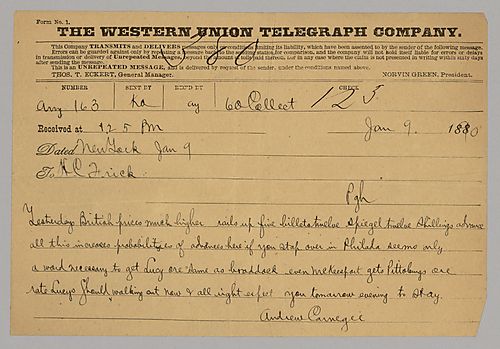 Form No. 1.
THE WESTERN UNION TELEGRAPH COMPANY.
This Company TRANSMITS and DELIVERS messages only on conditions limiting its liability, which have been assented to by the sender of the following message.
Errors can be guarded against only by repeating a message back to the sending station for comparison, and the company will not hold itself liable for errors or delays
in transmission or delivery of Unrepeated Messages, beyond the amount of tolls paid thereon, nor in any case where the claim is not presented in writing within sixty days
after sending the message.
This is an UNREPEATED MESSAGE, and is delivered by request of the sender, under the conditions named above.
THOS. T. ECKERT, General Manager. NORVIN GREEN, President.
NUMBER SENT BY REC'D BY CHECK
163 60 Collect 123
Received at 125 PM Jan 9. 188
Dated New York Jan 9
To H C Frick
Pgh
Yesterdays British prices much higher rails up five billets twelve spiegel twelve shillings advance
all this increases probabilities of advances here if you stop over in Philada seems only
a word necessary to get Lucy ore same as braddock even McKeesport gets Pittsburgs ore
rate Lucys should walking out now & all right expect you tomorrow evening to stay.
Andrew Carnegie